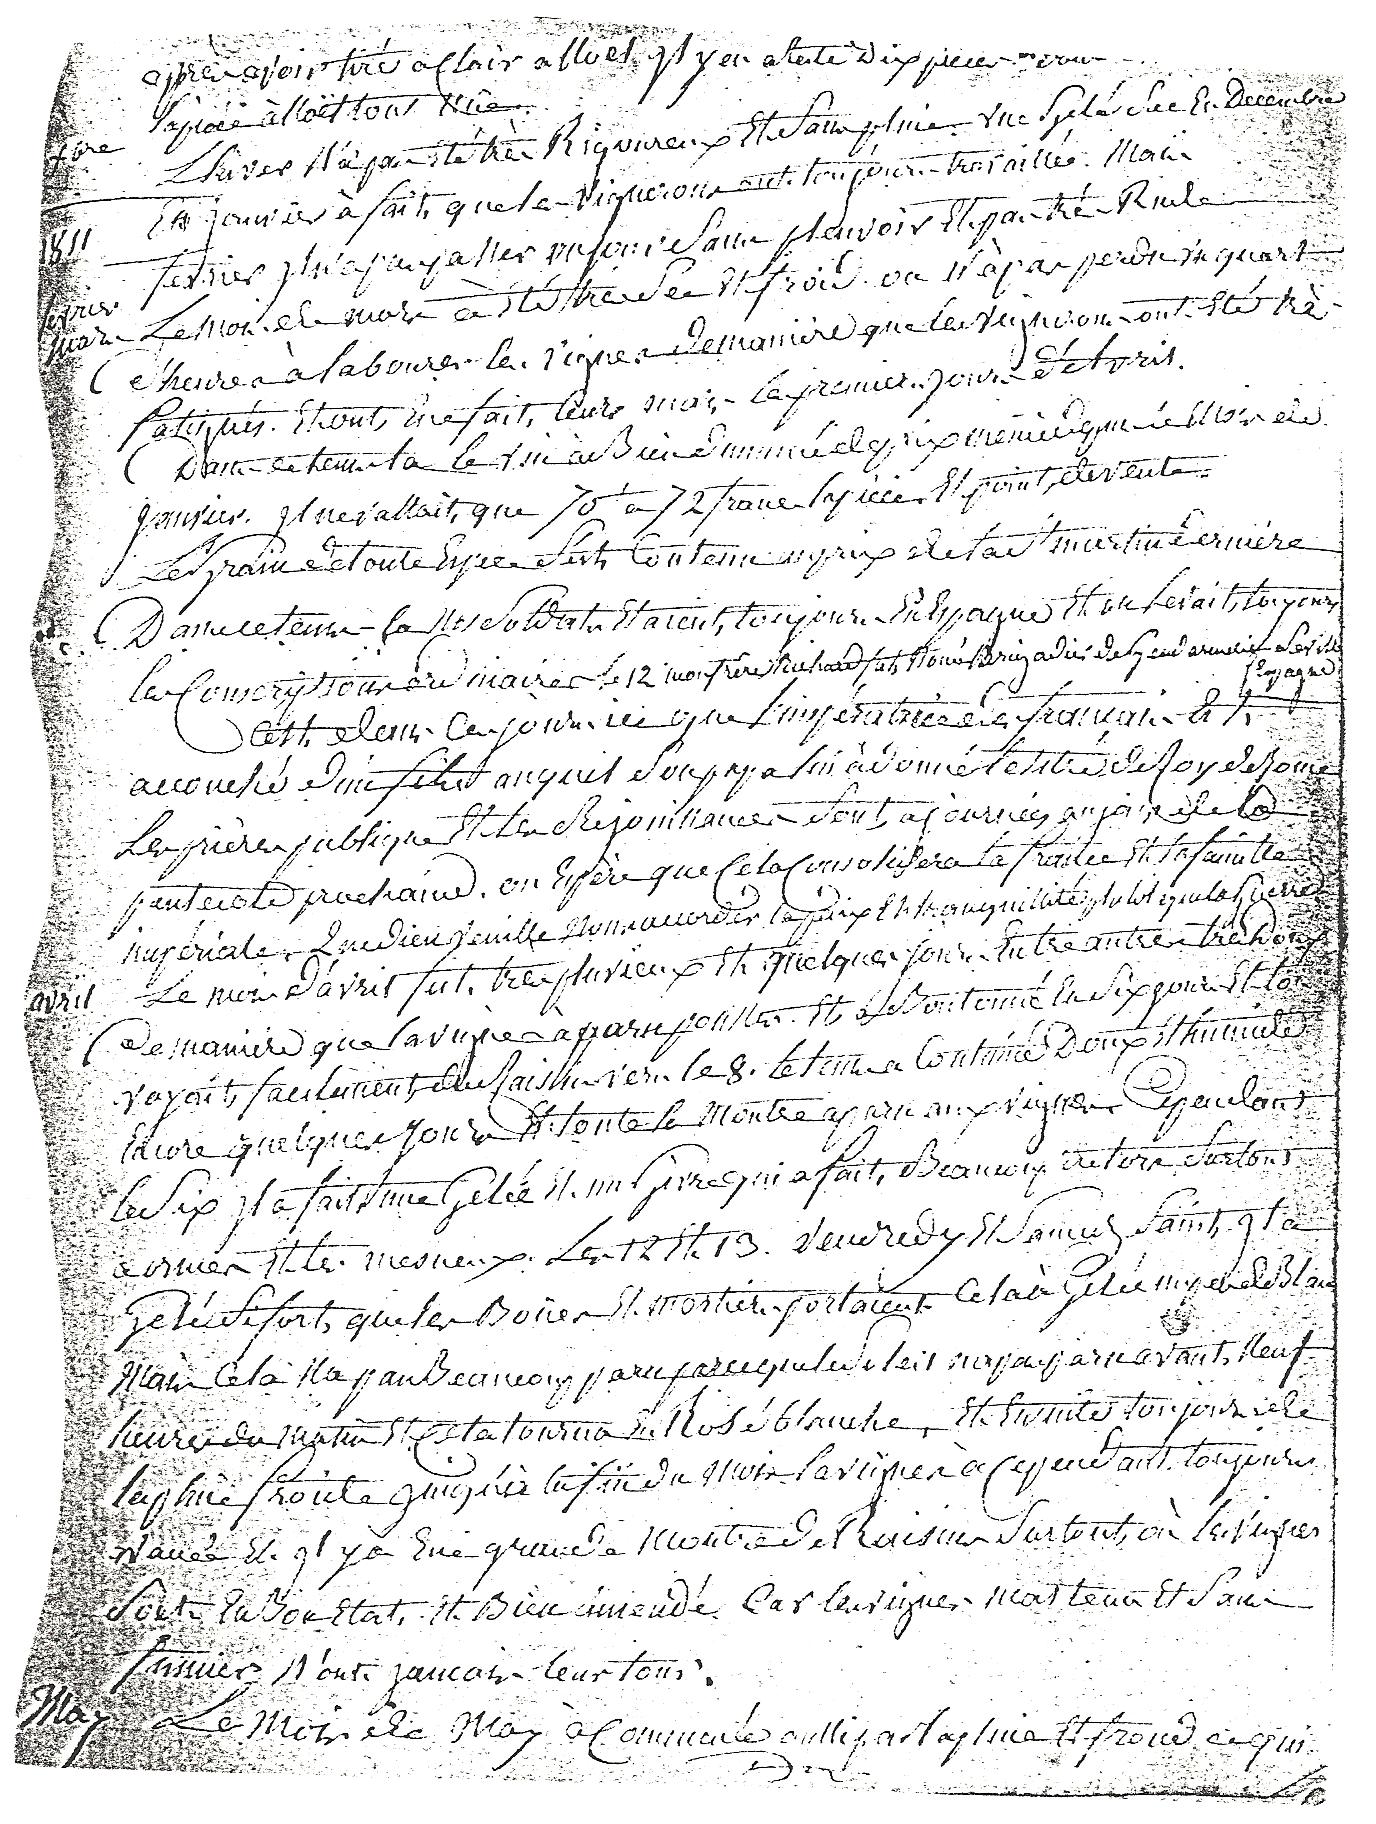 après avoir tiré a clair a Noel. jl y en a eu dix pieces
L'hiver N'a pas Eté très Rigoureux Et Sans pluie. une Gelée Sec En Decembre
Et Janvier à fait, que les vignerons ont toujours travaillés. Mais
1811 fevrier jl n'a pas passer un jour Sans pleuvoir Et pas très Rude
fevrier
mars Le Mois de mars à été très Sec Et froid. on N'à pas perdu un quart
d'heures à labourer les vignes demanière que les vignerons ont Eté très
fatigués. Et ont Enfait, leurs mars le premier jour d'Avril.
Dans ce tems la le vin à Bien diminué de prix même dépuis le Mois de
Janvier. jl ne vallait, que 70 à 72 francs la piece Et point, de vente.
Le Grain de toute Espece S'est Soutenu au prix de la St martin dernière
Dans ce tems la Nos Soldats Etaient, toujours En Espagne Et on levait, toujours
les Conscriptions ordinaires le 12 mon frère Richard fut Nomé Brigadier de Gendarmerie a Seville
Espagne
C'est, dans Ces jours ici que L'impératrice des français Est,
accouché d'un fils auquel Son papa lui à donné le titre de Roy de Rome
Les prières publiques Et les Rejouissances Sont, ajournées au jour de la
pentecote prochaine. on Espère que Cela Consolidera la france Et la famille
impériale. Que dieu Veuille Nous accorder la paix Et tranquillité plutot que la Guerre
avril Le mois d'avril fut, tres pluvieux Et quelques jours Entre autres très doux
de manière que la vigne à paru pousser. Et a Boutonné En Six jours Et l'on
voyait, facilement, des Raisins vers le 8. le tems a Continué Doux Et humide
Encore quelques jours Et toute la Montre a paru aux vignes. Cependant
le Six jl a fait, une Gelée Et un Givre qui a fait, Beaucoup de tort Surtout
a ormes Et les mesneux. Les 12 Et 13. Vendredy Et Samedy Saint, jl a
Gelé Si fort, que les Boües Et mortiers portaient. Cela à Gelé un peu de Blanc
Mais Cela N'a pas Beaucoup paru parceque le Soleil n'a pas paru avant, Neuf
heures du Matin Et Cela tourna En Rosé blanche, Et Ensuite toujours de
la pluie froide jusqu'à la fin du Mois la vigne à Cependant, toujours
avancé Et jl y a Une grande Montre de Raisins Surtout, où les vignes
Sont En Bon Etat, Et Bien amendé. Car les vignes mal tenus Et Sans
fumier N'ont jamais leur tour.
May Le Mois de May à Commencée aussi par la pluie Et froid ce qui